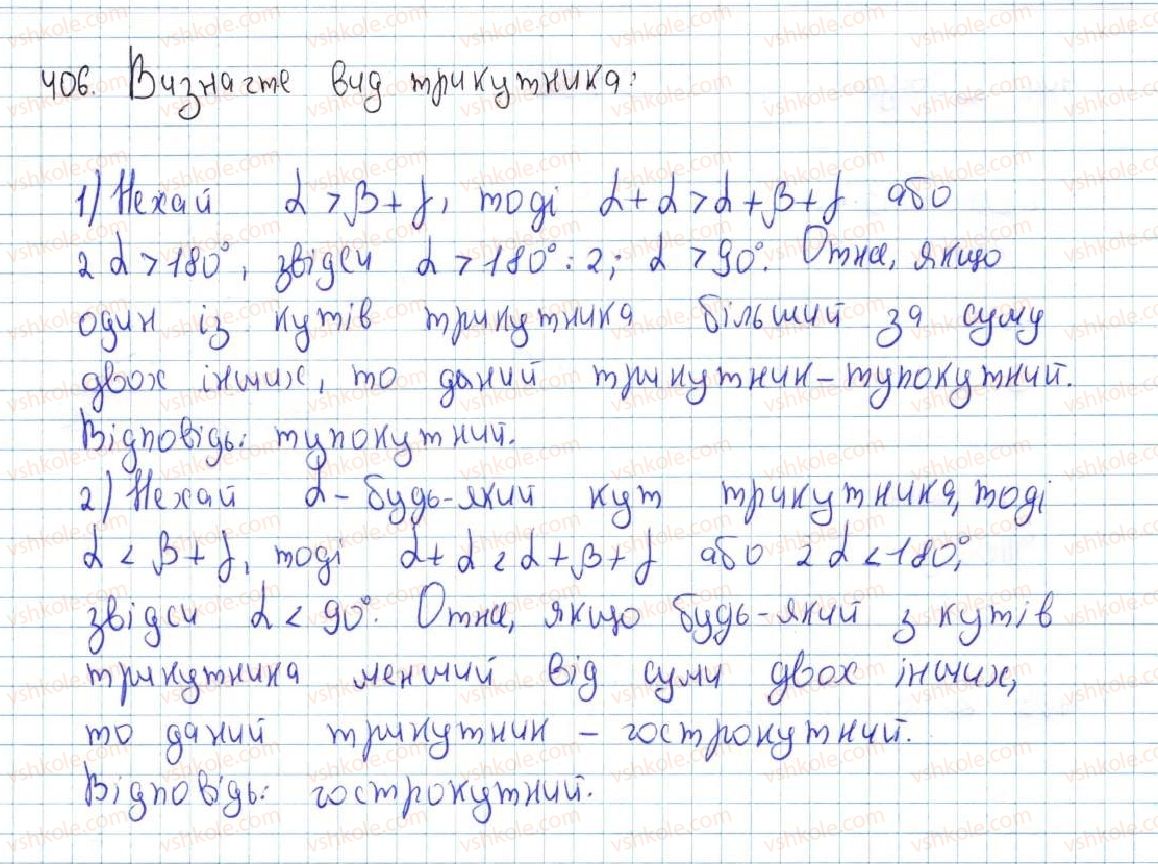 406. Визначте вид трикутника:
1) Нехай α > β + γ, тоді α + α > α + β + γ або
2α > 180°, звідси α > 180° : 2; α > 90°. Отже, якщо
один із кутів трикутника більший за суму
двох інших, то даний трикутник – тупокутний.
Відповідь: тупокутний.
2) Нехай α – будь-який кут трикутника, тоді
α < β + γ, тоді α + α < α + β + γ або 2α < 180°,
звідси α < 90°. Отже, якщо будь-який з кутів
трикутника менший від суми двох інших,
то даний трикутник – гострокутний.
Відповідь: гострокутний.